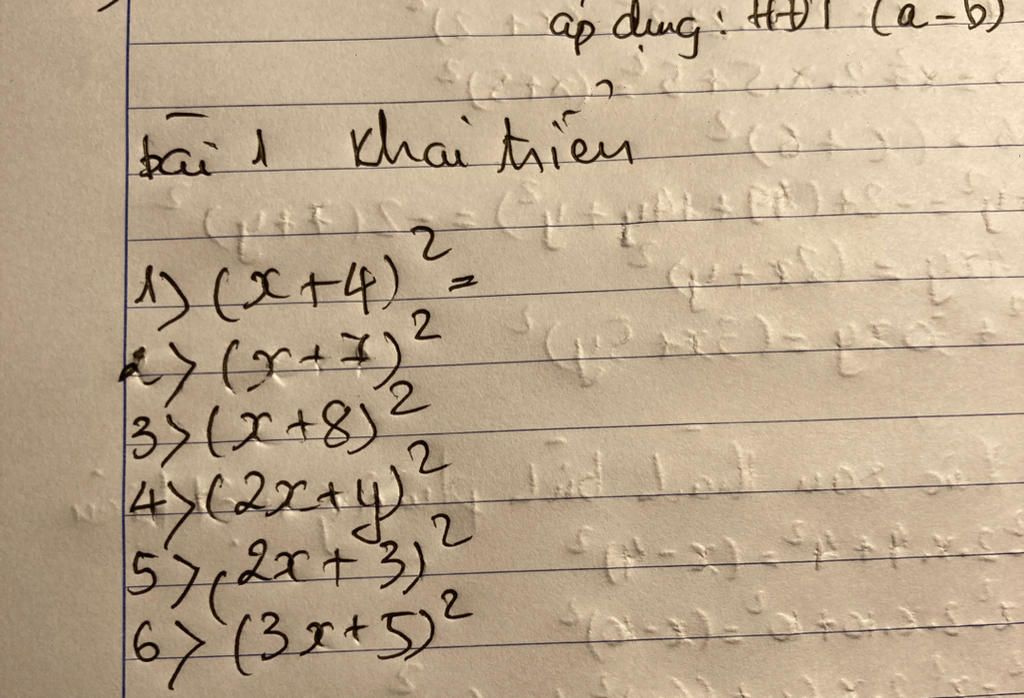 áp dụng: HĐT (a-b)
bài 1 Khai triển
1> (x+4)² =
2> (x+7)²
3> (x+8)²
4> (2x+y)²
5> (2x+3)²
6> (3x+5)²